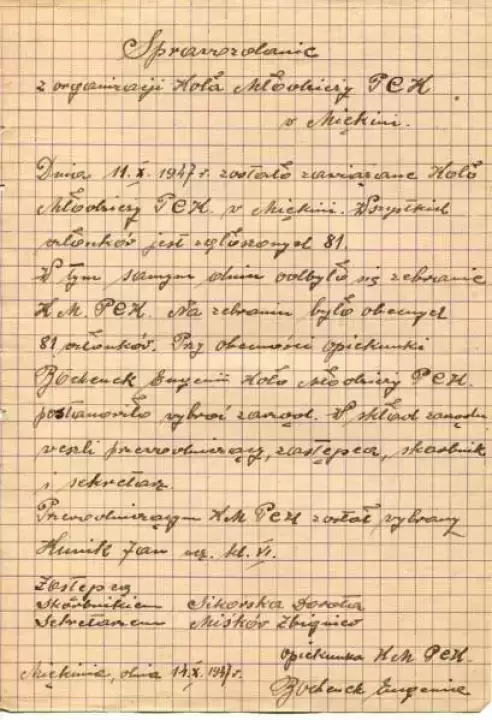 Sprawozdanie
z organizacji Koła Młodzieży PCK
w Miękini.
Dnia 11.X.1947 r. zostało zawiązane Koło
Młodzieży PCK. w Miękini. Wszystkich
członków jest zgłoszonych 81.
W tym samym dniu odbyło się zebranie
K.M. PCK. Na zebraniu było obecnych
81 członków. Przy obecności opiekunki
Eugenii Koło Młodzieży PCK.
postanowiło wybrać zarząd. W skład zarządu
weszli przewodniczący, zastępca, skarbnik
i sekretarz.
Przewodniczącym KM PCK został wybrany
Jan ucz. kl. VI.
Zastępcą
Skarbnikiem Sikorska Dorota
Sekretarzem Miśków Zbigniew
opiekunka KM PCK.
Miękinia, dnia 14.X.1947r.
Eugenia